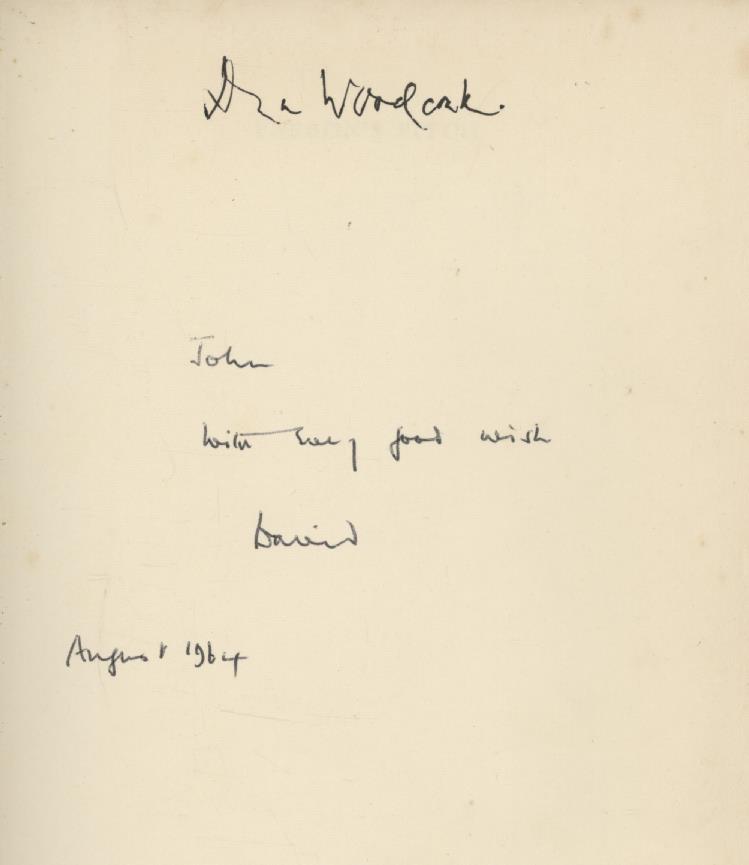 Woodcock.
John
with every good wish
David
August 1964